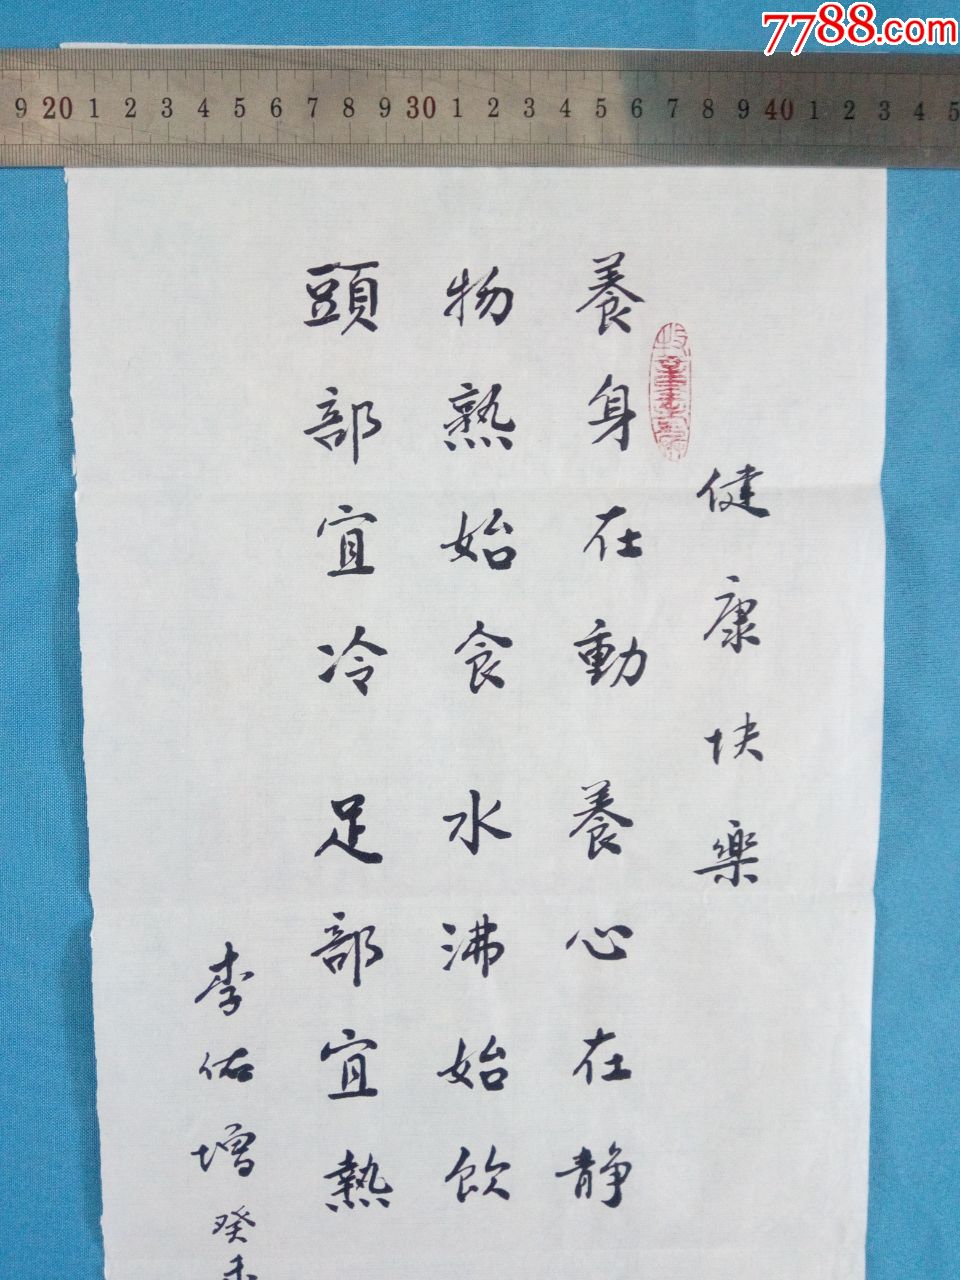 7788.com
9 20 1 2 3 4 5 6 7 8 9 30 1 2 3 4 5 6 7 8 9 40 1 2 3 4 5
健康快樂
養身在動養心在静
物熟始食水沸始飲
頭部宜冷足部宜熱
李佑增癸未